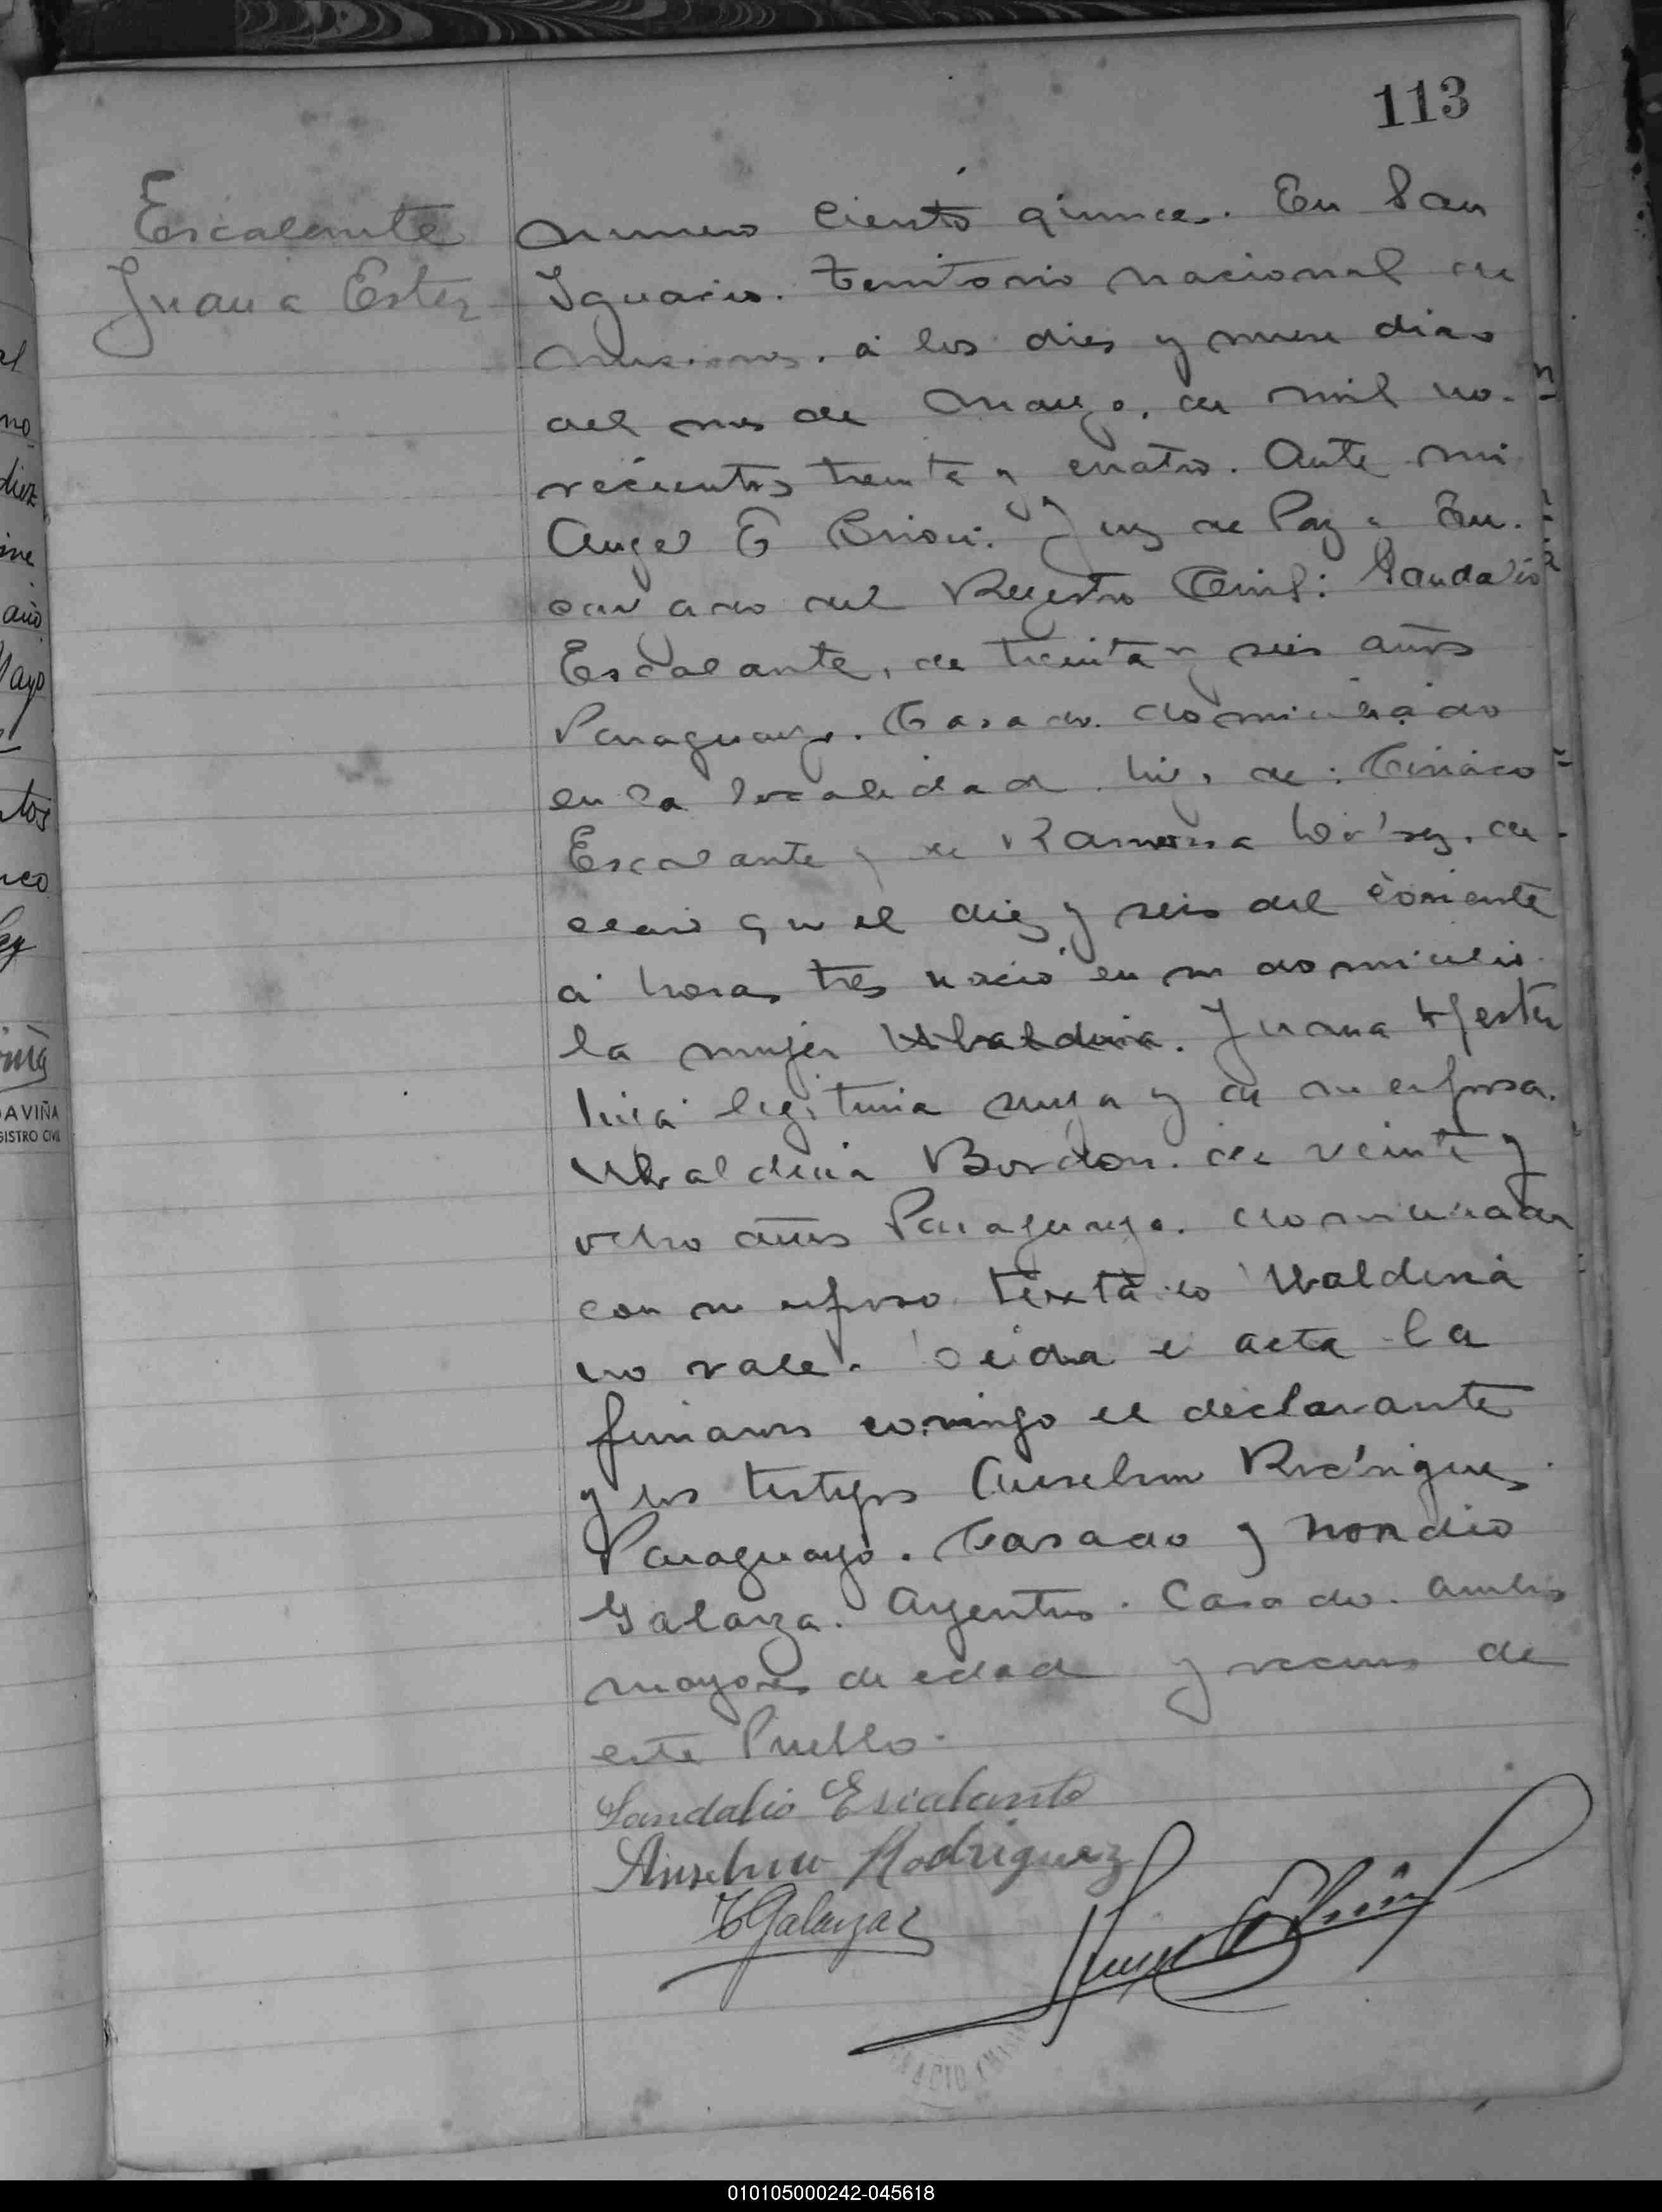 113
Escalante
Juana Ester
Numero Ciento quince. En San
Ignacio. Territorio nacional de
Misiones. a los dies y nueve dias
del mes de Mayo, de mil no-
vecientos treinta y cuatro. Ante mi
Angel E Juez de Paz e En-
cargado del Registro Civil: Sandalio
Escalante, de treinta y seis años
Paraguayo. Casado. domiciliado
en la localidad. hijo de: Ciriaco
Escalante y de Ramona de-
claró que el diez y seis del coriente
a horas tres nació en su domicilio
la mujer Ubaldina. Juana Hester
hija legitima suya y de su esposa.
Ubaldina Bordon. de veinte y
ocho años Paraguaya. domiciliada
con su esposo. textado Ubaldina
no vale. Leida el acta la
firmaron conmigo el declarante
y los testigos Anselmo Rodrigues
Paraguayo. Casado y
Galarza. Argentino. Casado. ambos
mayores de edad y vecinos de
este Pueblo.
Sandalio Escalante
Anselmo Rodriguez
Galarza
al
no
diez
ine
año
Mayo
tos
DAVIÑA
GISTRO CIVIL
010105000242-045618